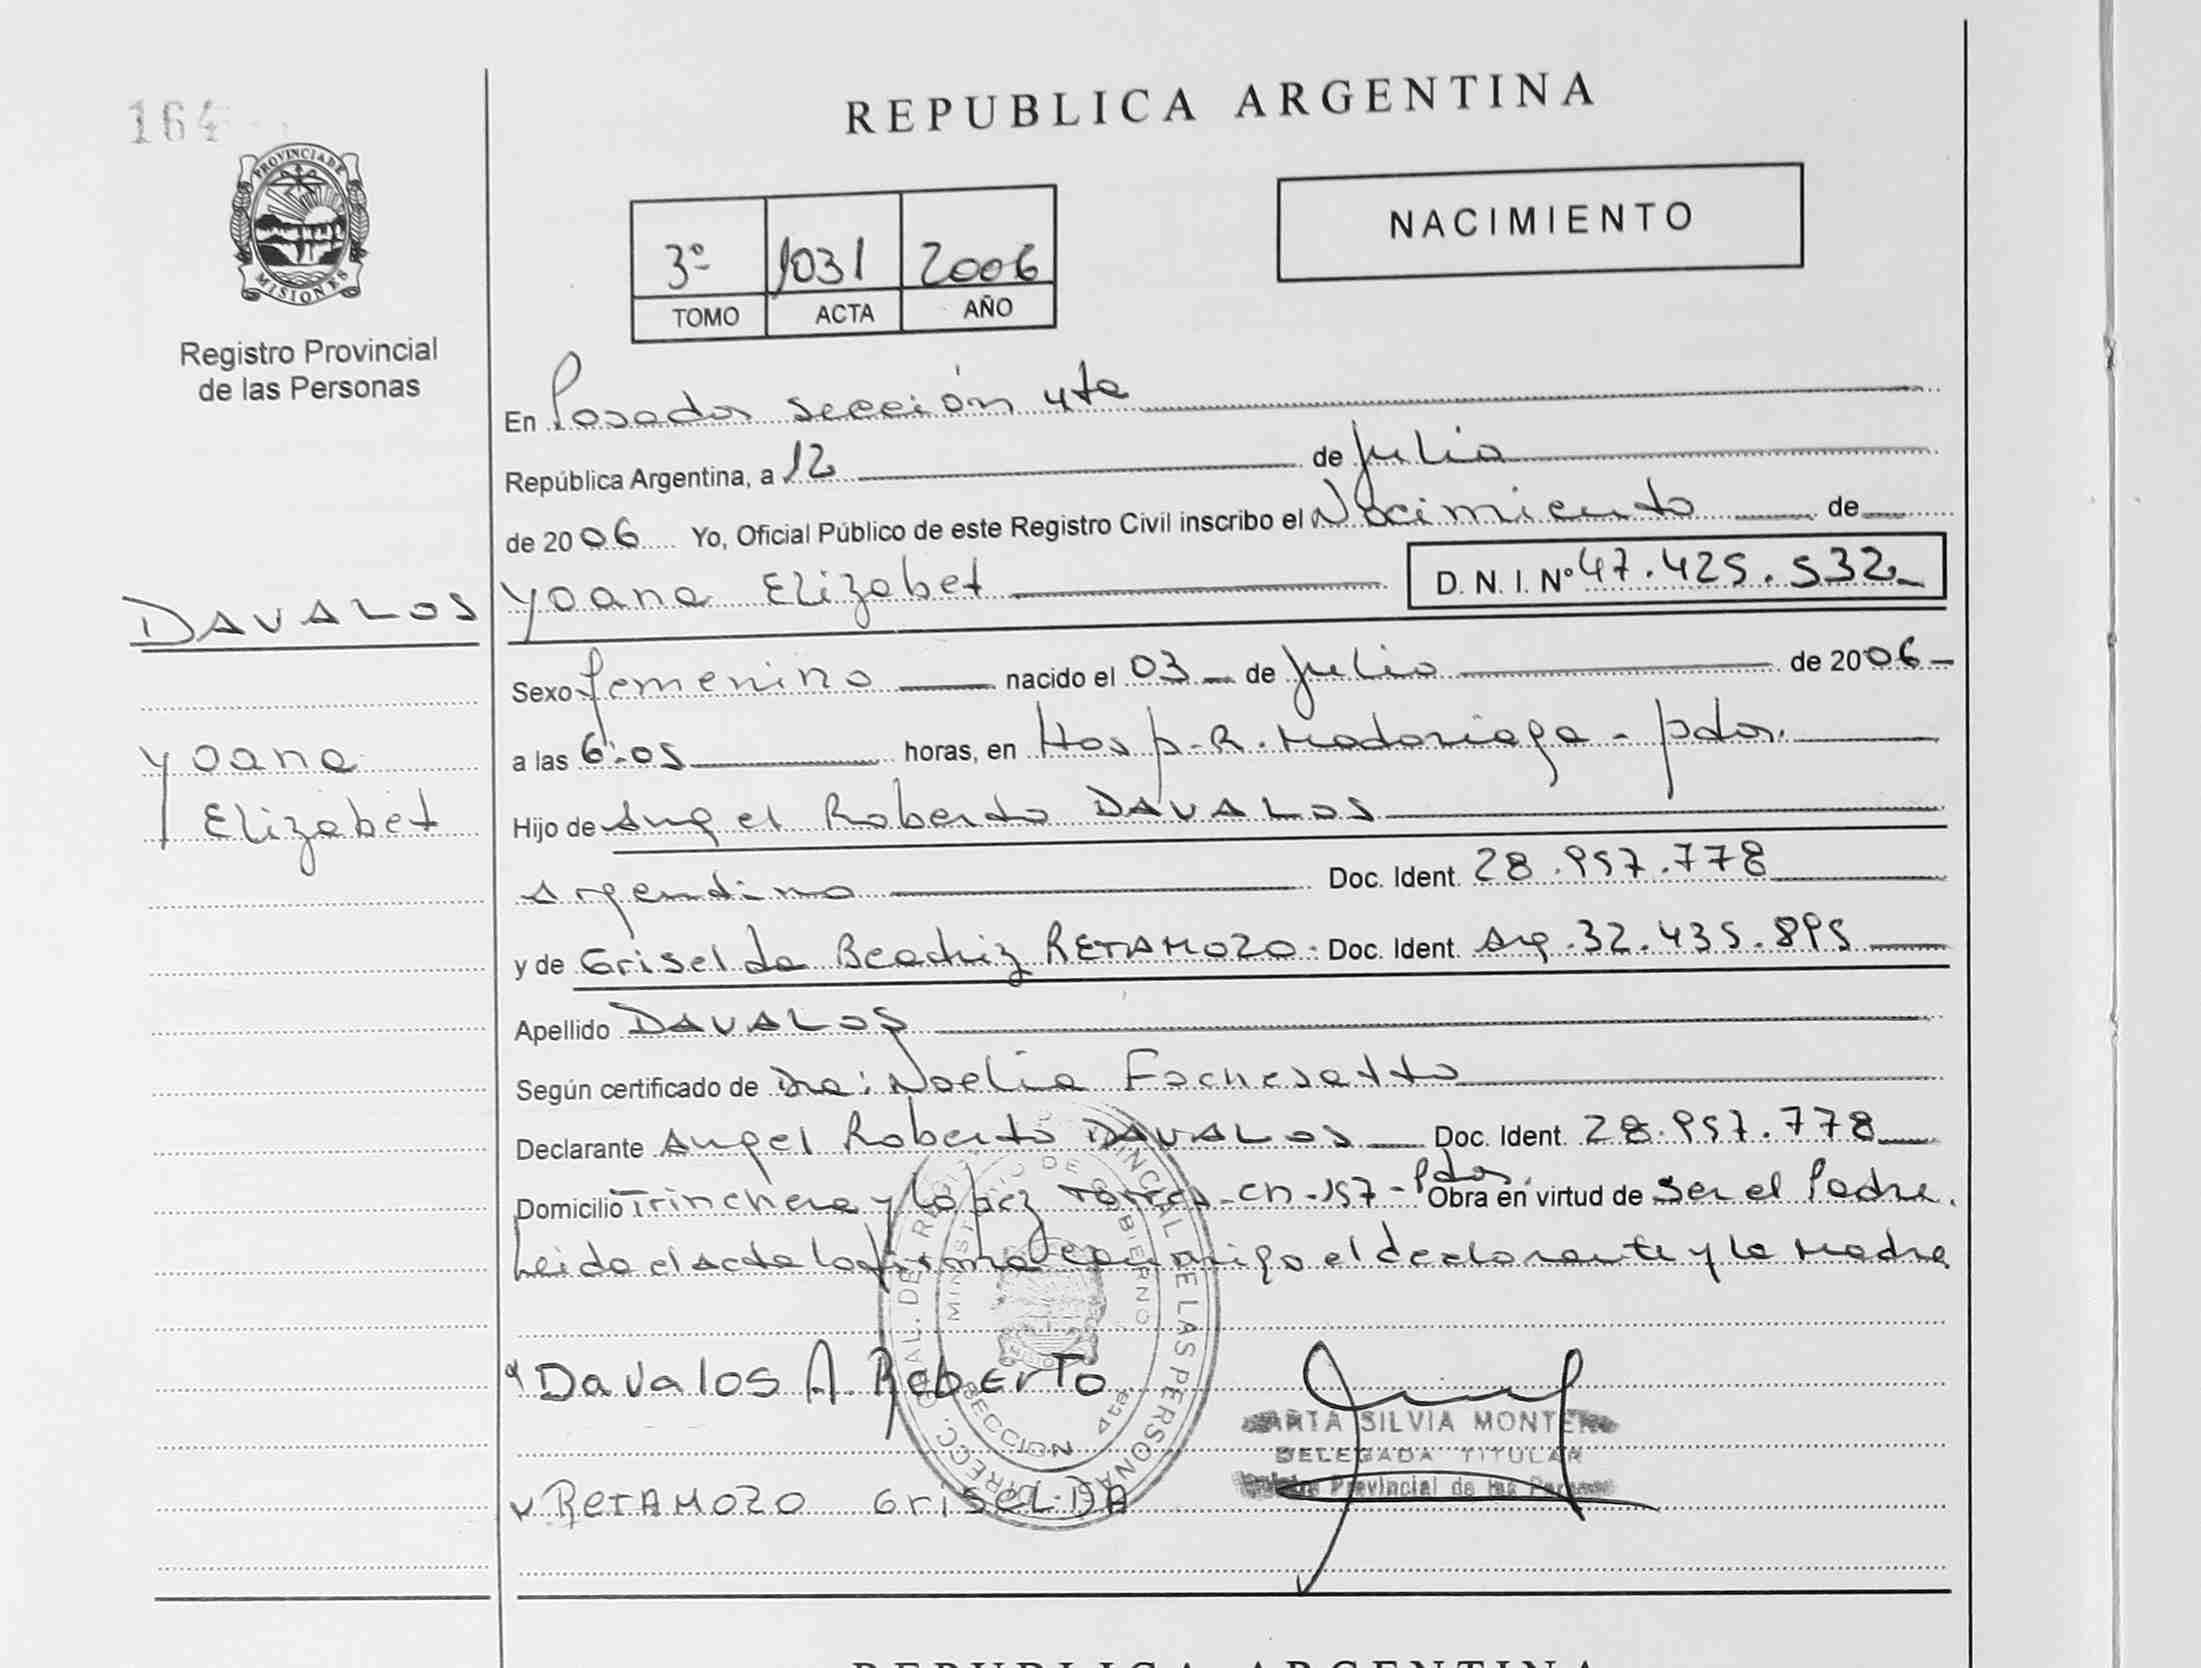 164
REPUBLICA ARGENTINA
PROVINCIA DE
MISIONES
Registro Provincial
de las Personas
3º 1031 2006
TOMO ACTA AÑO
NACIMIENTO
En Posadas sección 4ta
República Argentina, a 12 de Julio
de 2006 Yo, Oficial Público de este Registro Civil inscribo el Nacimiento de
DAVALOS
Yoana Elizabet D. N. I. Nº 47.425.532
Sexo femenino nacido el 03 de Julio de 2006
Yoana
Elizabet
a las 6:05 horas, en Hosp. R. Madariaga - Pdas.
Hijo de Angel Roberto DAVALOS
Argentino Doc. Ident. 28.957.778
y de Griselda Beatriz RETAMOZO. Doc. Ident. Arg. 32.435.895
Apellido DAVALOS
Según certificado de Dra: Noelia Fachesatto
Declarante Angel Roberto DAVALOS Doc. Ident. 28.957.778
Domicilio Trinchera y López Torres - CH-157 - Pdas. Obra en virtud de ser el Padre.
Leida el acta la firma conmigo el declarante y la Madre
Davalos A. Roberto
MARTA SILVIA MONTERO
DELEGADA TITULAR
Provincial de las Personas
RETAMOZO GriseLDA
MINISTERIO DE GOBIERNO
SECCION 4ta
REPUBLICA ARGENTINA